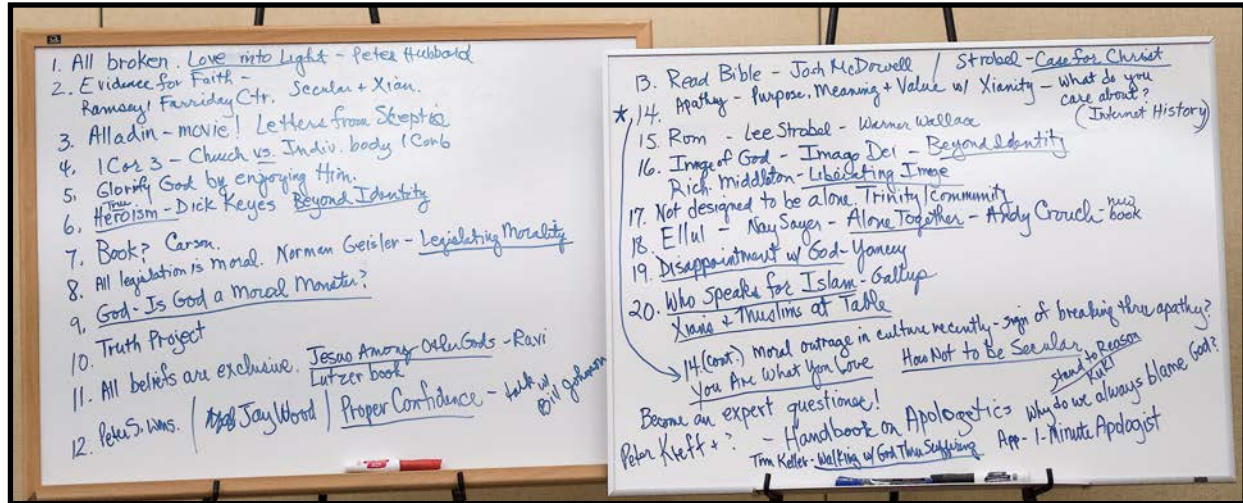 1. All broken. Love into Light - Peter Hubbard
2. Evidence for Faith -
Ramsey! Farriday Ctr. Secular + Xian.
3. Alladin - movie! Letters from Skeptic
4. 1 Cor 3 - Church vs. Indiv. body 1 Cor 6
5. Glorify God by enjoying Him.
6. True Heroism - Dick Keyes Beyond Identity
7. Book? Carson.
8. All legislation is moral. Norman Geisler - Legislating Morality
9. God - Is God a Moral Monster?
10. Truth Project
11. All beliefs are exclusive. Jesus Among Other Gods - Ravi
Lutzer book
12. Peter S. Wms. / Jay Wood / Proper Confidence - talk w/
Bill Johnson
13. Read Bible - Josh McDowell / Strobel - Case for Christ
* 14. Apathy - Purpose, Meaning + Value w/ Xianity - What do you
care about?
(Internet History)
15. Rom - Lee Strobel - Warner Wallace
16. Image of God - Imago Dei - Beyond Identity
Rich. Middleton - Liberating Image
17. Not designed to be alone. Trinity/Community
18. Ellul - Nay Sayer - Alone Together - Andy Crouch - new
book
19. Disappointment w/ God - Yancey
20. Who Speaks for Islam - Gallup
Xians + Muslims at Table
14. (cont.) Moral outrage in culture recently - sign of breaking thru apathy?
You Are What You Love How Not to be Secular
Stand to Reason
Kukl
Become an expert questioner!
Why do we always blame God?
Peter Kreft + ? - Handbook on Apologetics
Tim Keller - Walking w/ God Thru Suffering App - 1-Minute Apologist